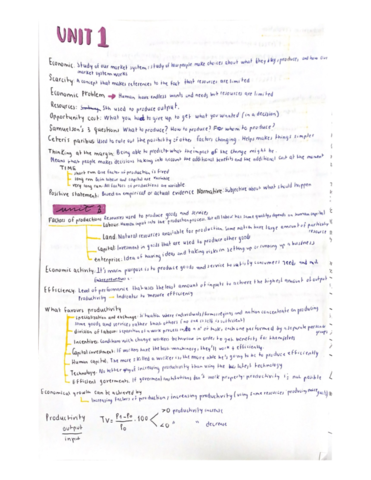 UNIT 1
Economic: Study of our market system: study of how people make choices about what they buy, produce, and how our
market system works
Scarcity: A concept that makes references to the fact that resources are limited
Economic Problem → Human have endless wants and needs but resources are limited
Resources: Sth used to produce output.
Opportunity cost: What you had to give up to get what you wanted (in a decision)
Samuelson's 3 questions What to produce? How to produce? For whom to produce?
Ceteris paribus Used to rule out the possibility of other factors changing. Helps makes things simpler
Thinking at the margin: Being able to predicte when the impact of the change might be.
Means when people makes decisions taking into account the additional benefits and the additional cost at the moment
TIME
short run: One factor of production is fixed
long run: Both labour and capital are variable
very long run: All factors in productions are variable
Positive statement: Based on empirical or actual evidence Normative: Subjective about what should happen
unit 2
Factors of production: Resources used to produce goods and services
Labour: Human input into the production process. Not all labour has same quality: depends on human capital
Land: Natural resources available for production. Some nations have large amount of particular resource
Capital: Investment in goods that are used to produce other goods
enterprise: Idea of having ideas and taking risks in setting up or running of a business
Economic activity: It's main purpose is to produce goods and services to satisfy consumers' need and
Efficiency: Level of performance that uses the least amount of inputs to achieve the highest amount of output
Productivity → Indicator to measure efficiency
What favours productivity
Specialization and exchange: Is when individuals/firms/regions and nation concentrate on producing
some goods and services rather than others
division of labour: separation of a work process into a nº of tasks, each one performed by a separate person
Incentive: Conditions which change workers behaviour in order to get benefits for themselves
Capital investment: If workers have the best machinery, they'll work + efficiently.
Human capital: The more skilled a worker is the more able he's going to be to produce efficiently
Technology: No better way of increasing productivity than using the best latest technology.
Efficient government: If government institutions don't work properly productivity is not posible
Economical growth can be achieved by
Increasing factors of production & increasing productivity (using same resources producing more goods)
Productivity TV = Pt-Po/Po . 100 >0 productivity increase
output/input <0 " decrease